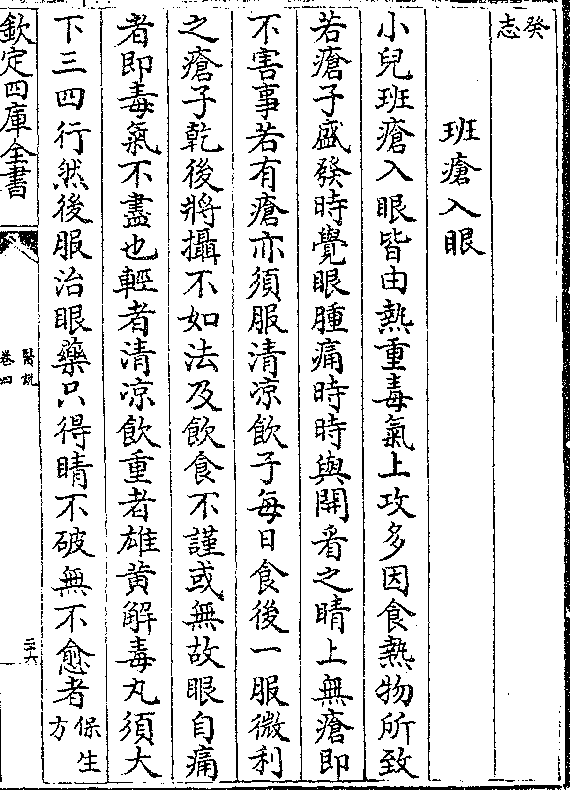 癸志
班瘡入眼
小兒班瘡入眼皆由熱重毒氣上攻多因食熱物所致
若瘡子盛發時覺眼腫痛時時與開看之睛上無瘡即
不害事若有瘡亦須服清凉飲子每日食後一服微利
之瘡子乾後將攝不如法及飲食不謹或無故眼自痛
者即毒氣不盡也輕者清凉飲重者雄黄解毒丸須大
下三四行然後服治眼藥只得睛不破無不愈者保生方
欽定四庫全書
醫說
卷四
三十六